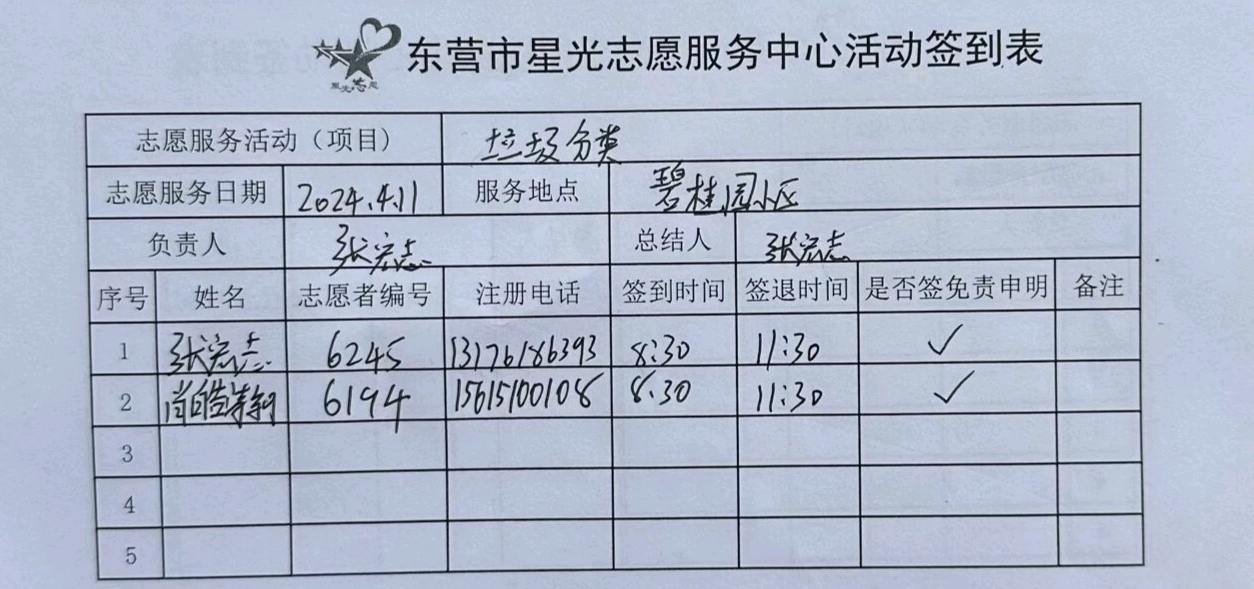 东营市星光志愿服务中心活动签到表
星光志愿
志愿服务活动（项目） 垃圾分类
志愿服务日期 2024.4.11 服务地点 碧桂园小区
负责人 张宏志 总结人 张宏志
序号 姓名 志愿者编号 注册电话 签到时间 签退时间 是否签免责申明 备注
1 张宏志 6245 13176186393 8:30 11:30 ✓
2 6194 15615100108 8:30 11:30 ✓
3
4
5